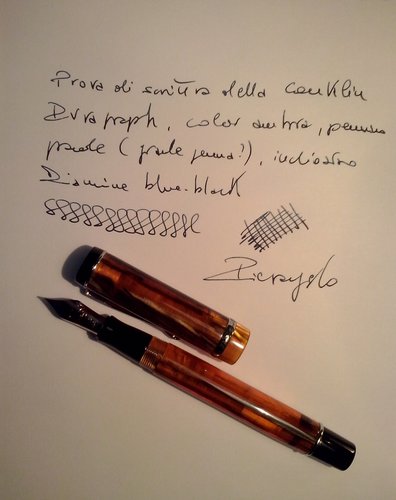 Prova di scrittura della Conklin
Duragraph, color ambra, pennino
(quale penna?), inchiostro
Diamine blue-black
Pierangelo